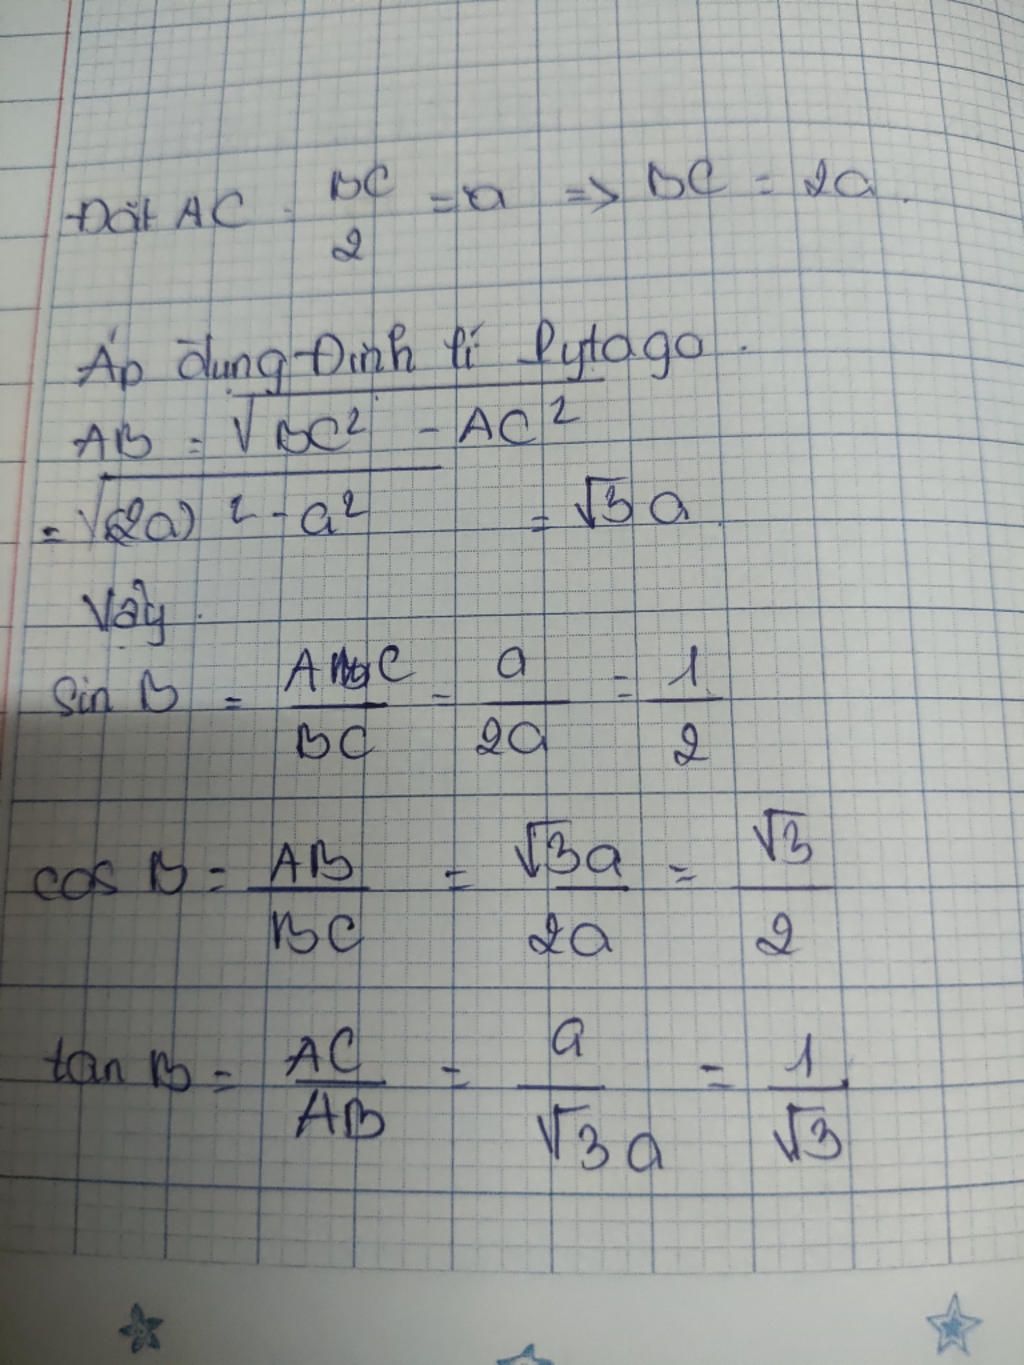 Đặt AC = BC/2 = a => BC = 2a.
Áp dụng Định lí Pytago.
AB = √BC² - AC²
= √(2a)² - a² = √3 a
Vậy.
sin B = AC/BC = a/2a = 1/2
cos B = AB/BC = √3a/2a = √3/2
tan B = AC/AB = a/√3a = 1/√3